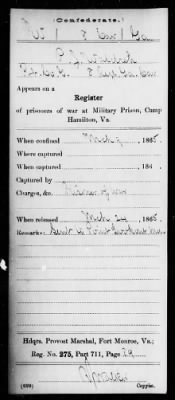 (Confederate.)
W | 8 Cav | Ga.
Pvt. Co. G, 8 Regt. Ga. Cav.
Appears on a
Register
of prisoners of war at Military Prison, Camp
Hamilton, Va.
When confined Mch 9, 1865
Where captured
When captured, 186 .
Captured by
Charges, &c. Prisoner of war
When released Mch 24, 1865.
Remarks: Sent to Point Lookout Md.
Hdqrs. Provost Marshal, Fort Monroe, Va.;
Reg. No. 275, Part 711, Page
(639) Copyist.